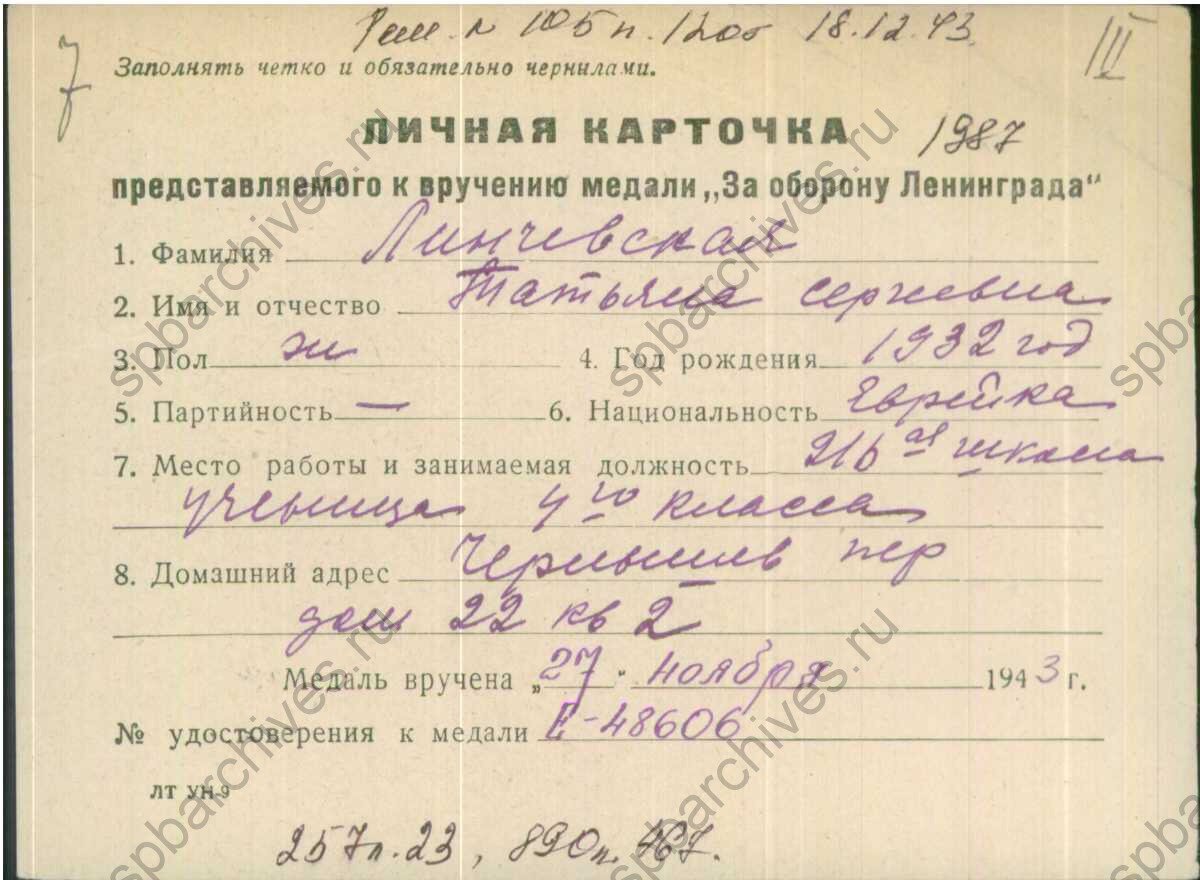 Реш. № 105 п. 12 от 18.12.43.
7
III
Заполнять четко и обязательно чернилами.
ЛИЧНАЯ КАРТОЧКА 1987
представляемого к вручению медали „За оборону Ленинграда“
1. Фамилия Линчевская
2. Имя и отчество Татьяна Сергеевна
3. Пол ж 4. Год рождения 1932 год
5. Партийность — 6. Национальность Еврейка
7. Место работы и занимаемая должность 216 ая школа
ученица 4 го класса
8. Домашний адрес Чернышев пер
дом 22 кв 2
Медаль вручена „27“ ноября 1943 г.
№ удостоверения к медали Е-48606
ЛТ УН-9
257 л. 23, 890 л. 467.
spbarchives.ru
spbarchives.ru
spbarchives.ru
spbarchives.ru